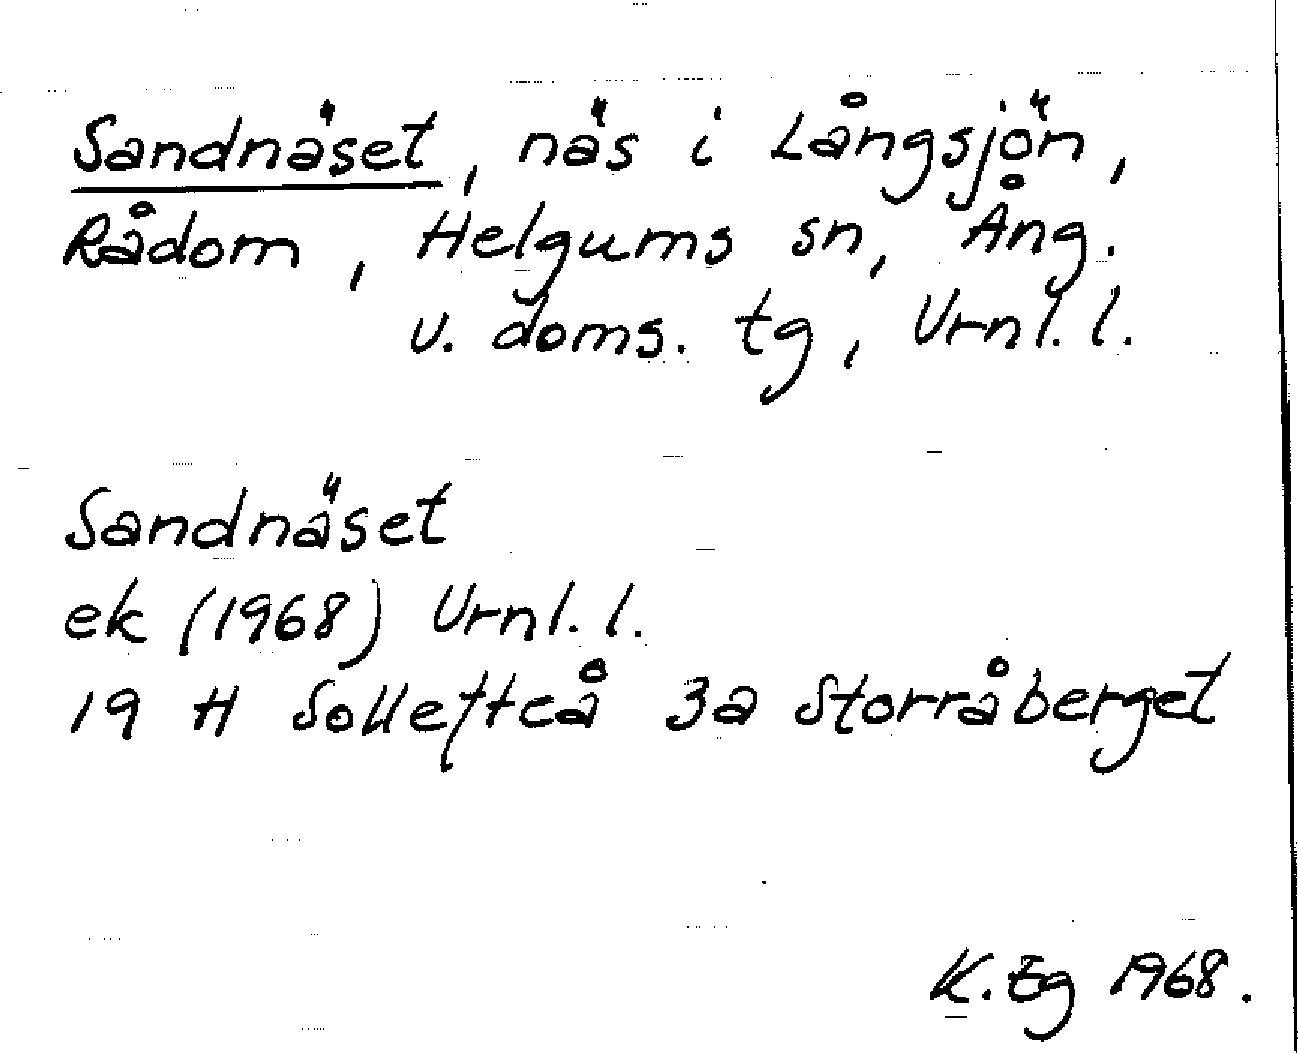 Sandnäset, näs i Långsjön,
Rådom, Helgums sn, Ång.
u. doms. tg, Urnl. l.
Sandnäset
ek (1968) Urnl. l.
19 H Sollefteå 3a Storråberget
K. Eg 1968.